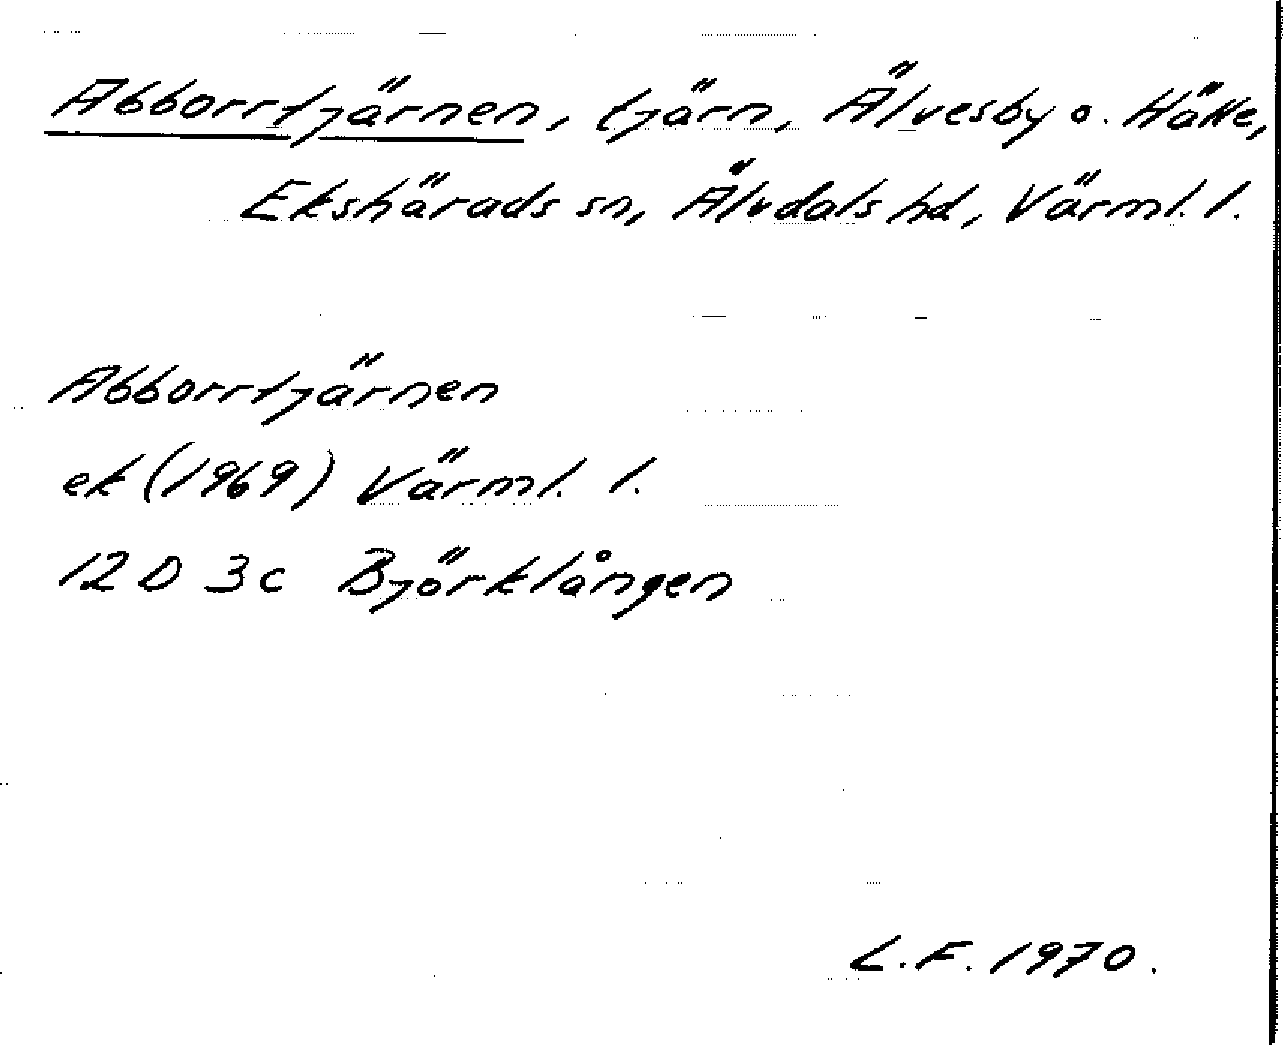 Abborrtjärnen, tjärn, Älvesby o. Hälle,
Ekshärads sn, Älvdals hd, Värml. l.
Abborrtjärnen
ek (1969) Värml. l.
12 D 3c Björklången
L.F. 1970.